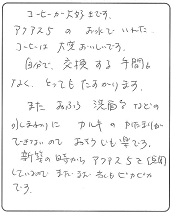 コーヒーが大好きです。
アクアス5 の お水で いれた
コーヒーは 大変 おいしいです。
自分で、交換する 手間も
なく、とっても たすかります。
また おふろ 洗面台 などの
水まわりに カルキ の かたまりが
できないので おそうじも 楽です。
新築の時から アクアス5 を
しているので まだ まだ ピカピカ
です。